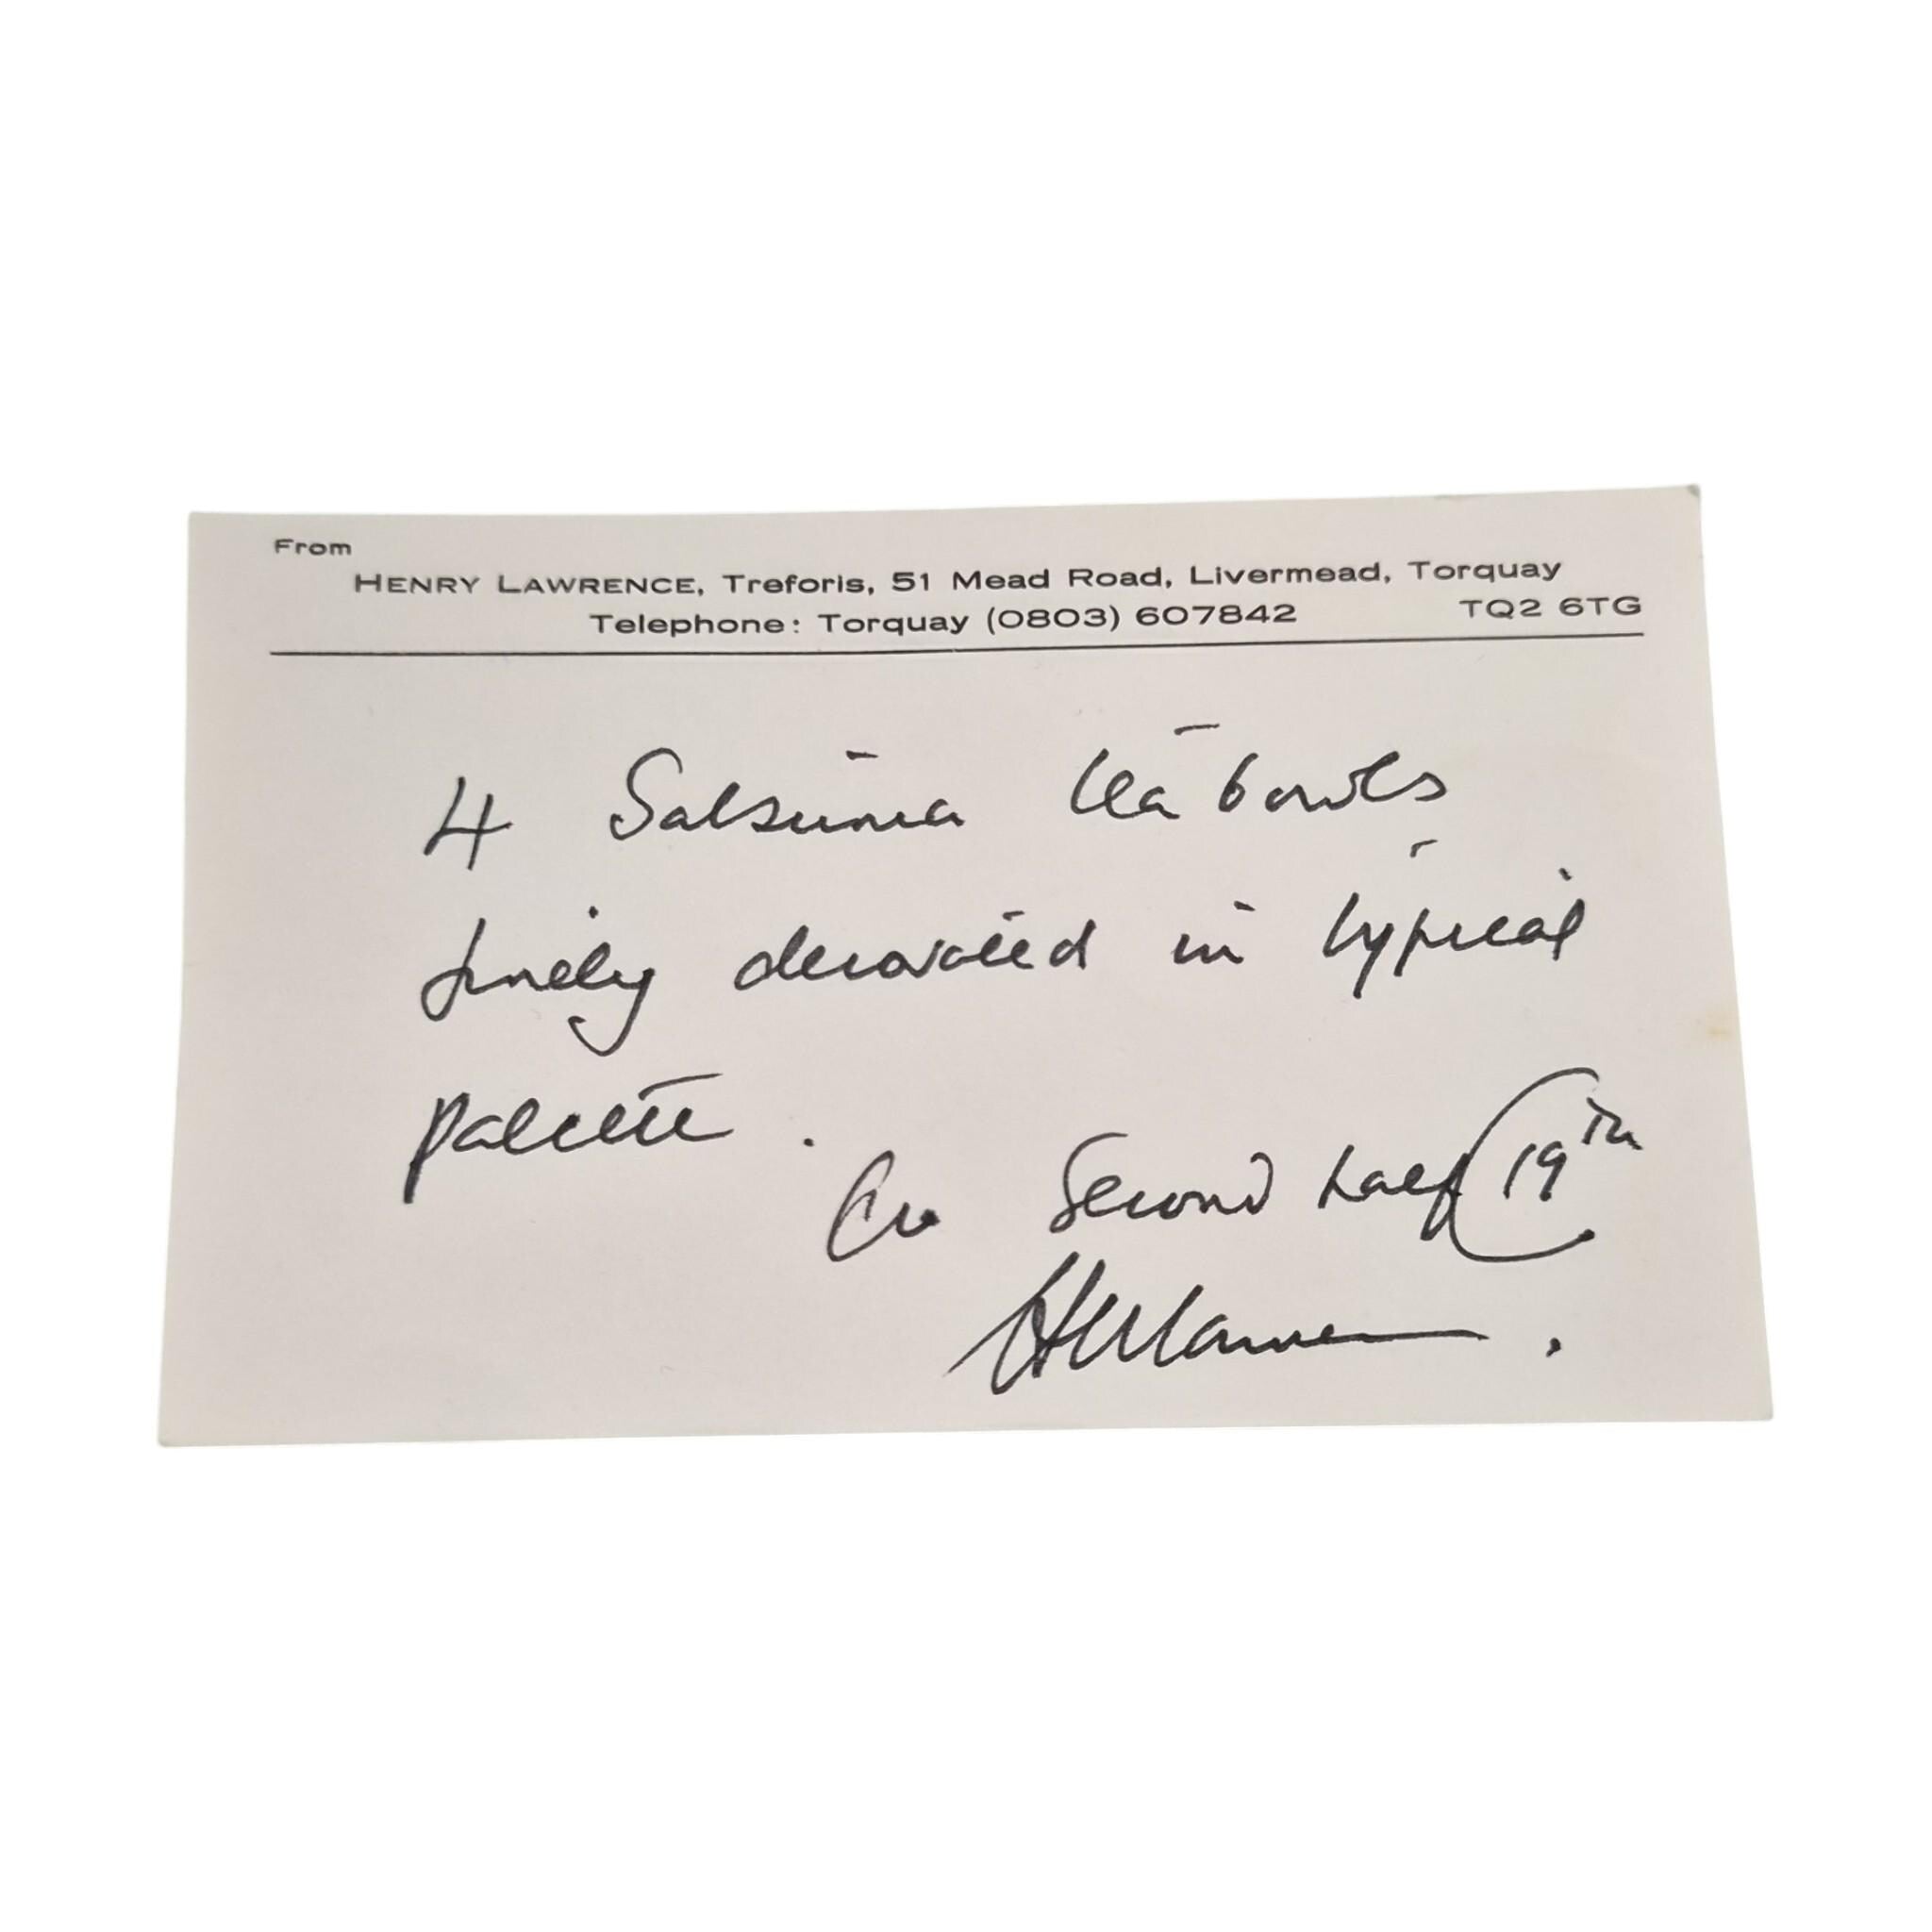 From
HENRY LAWRENCE, Treforis, 51 Mead Road, Livermead, Torquay
Telephone: Torquay (0803) 607842 TQ2 6TG
4 Satsuma tea bowls
finely decorated in typical
palette.
Second half C19th